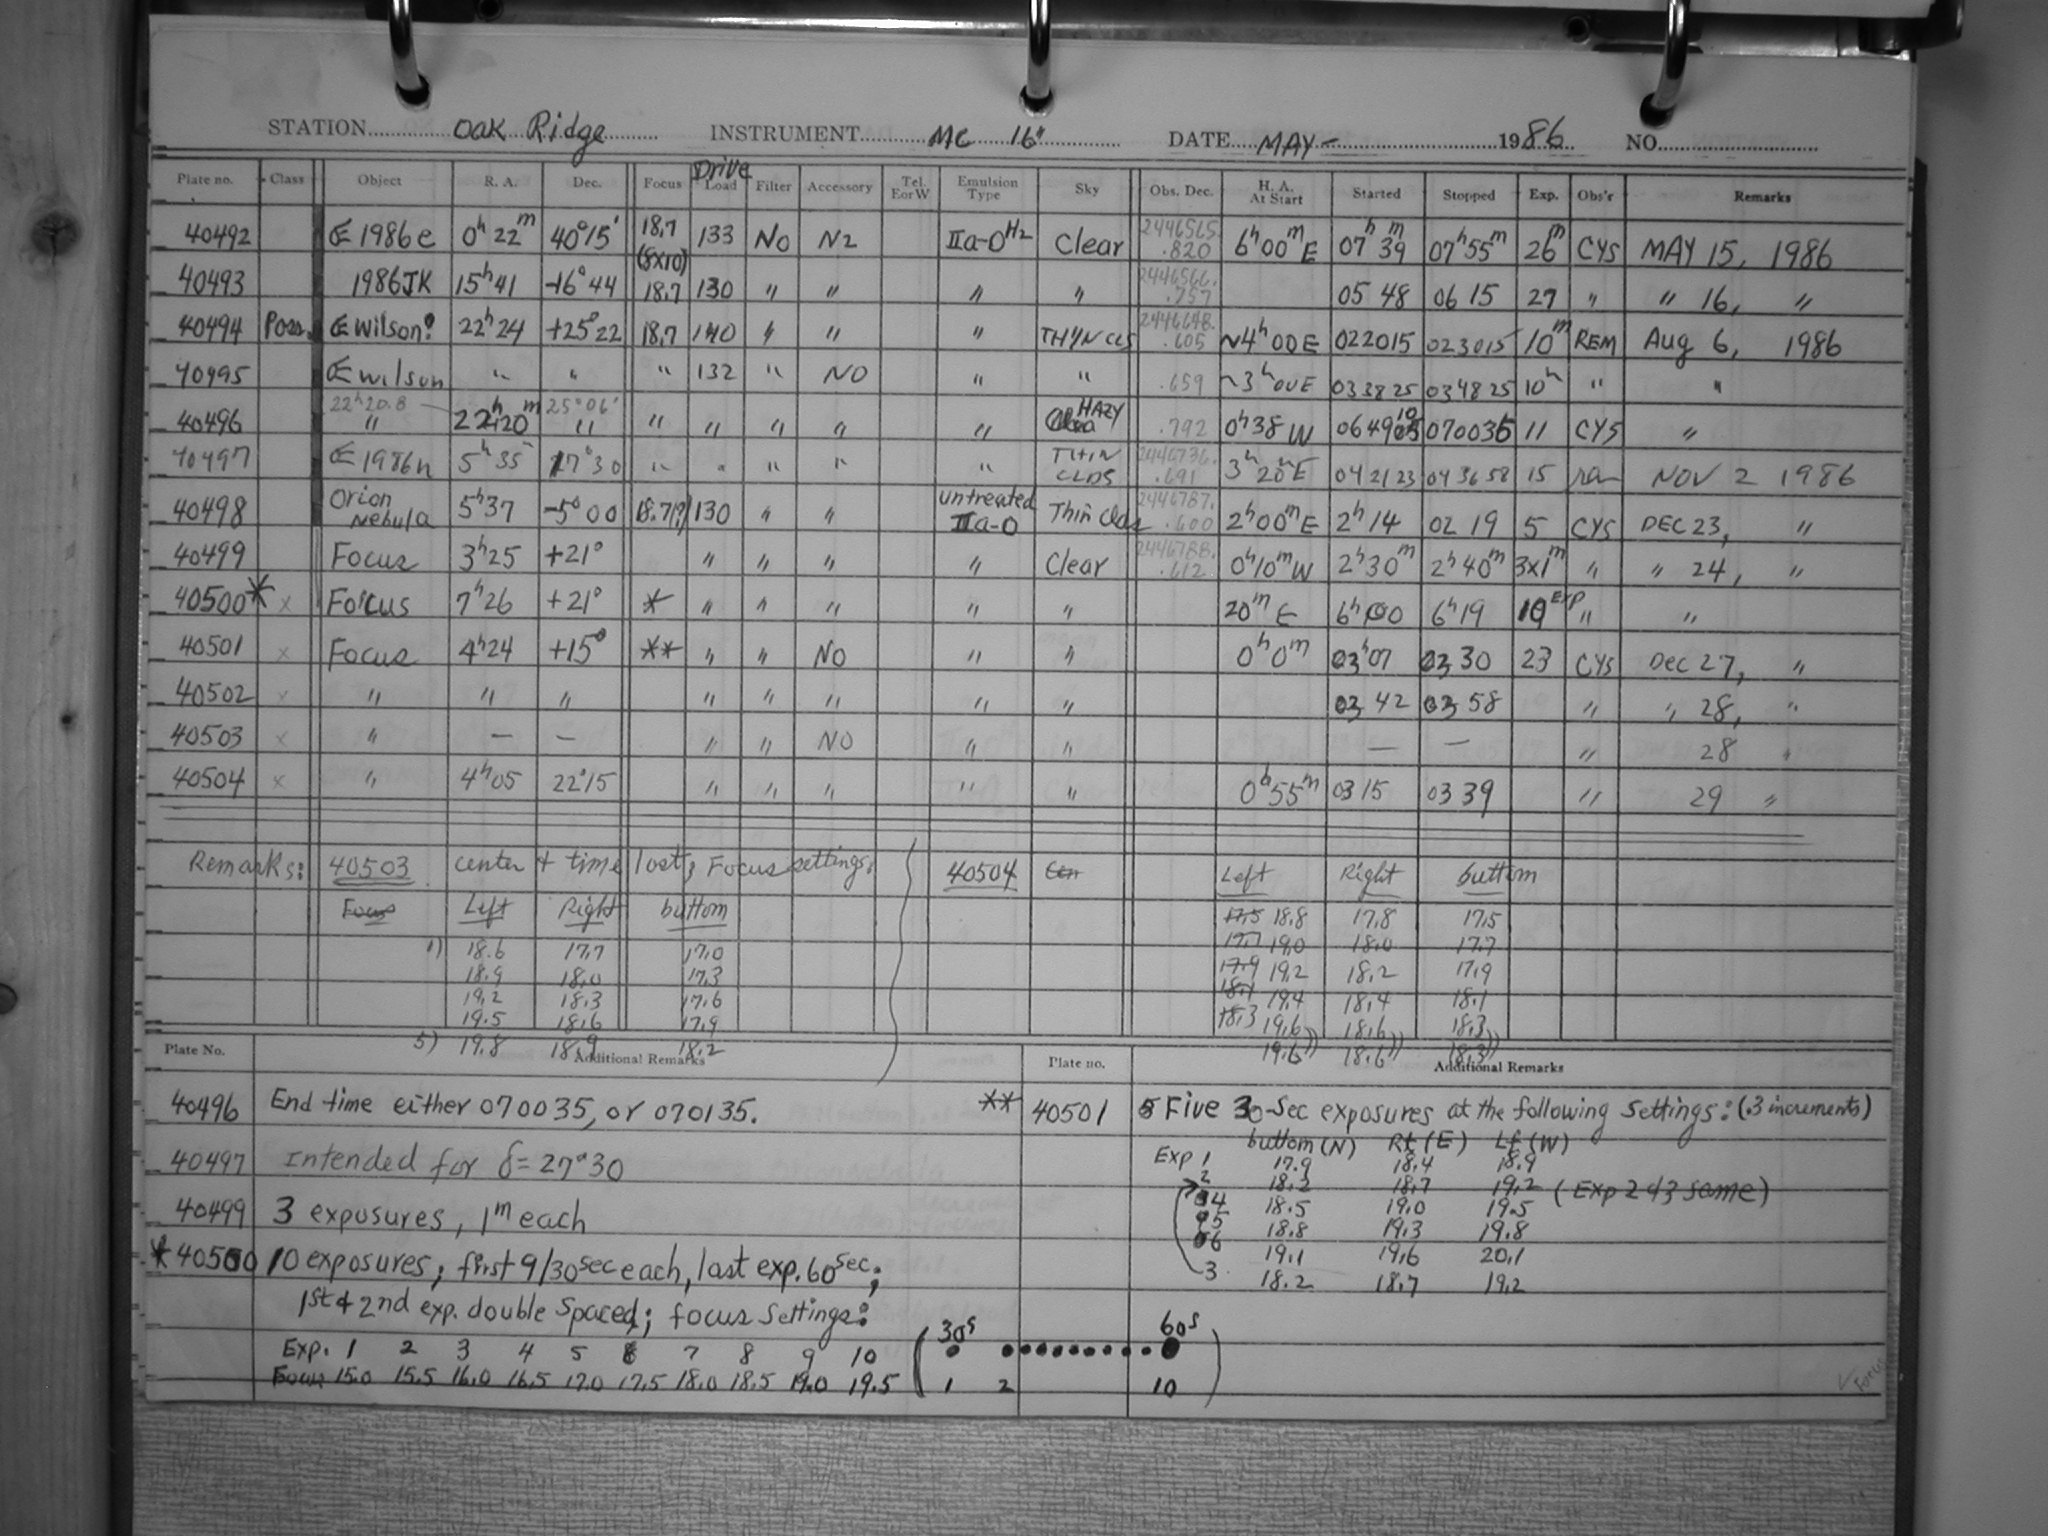 STATION Oak Ridge INSTRUMENT MC 16" DATE MAY- 1986 NO
Plate no. Class Object R. A. Dec. Focus Drive Load Filter Accessory Tel. E or W Emulsion Type Sky Obs. Dec. H. A. At Start Started Stopped Exp. Obs'r Remarks
40492 1986e 0h 22m 40°15' 18.7 (8x10) 133 No N2 IIa-O H2 Clear 2446565.820 6h00m E 07h 39m 07h55m 26m CYS MAY 15, 1986
40493 1986JK 15h41 -16°44 18.7 130 " " " " 2446566.757 05 48 06 15 27 " " 16, "
40494 Poss. Wilson? 22h24 +25°22 18.7 140 " " " THIN CLS 2446648.605 ~4h00E 022015 023015 10m REM Aug 6, 1986
40495 Wilson " " " 132 " NO " " .659 ~3h00E 033825 034825 10m " "
22h20.8 25°06'
40496 " 22h20m " " " " " " HAZY .792 0h38 W 064905 10 070035 11 CYS "
40497 1986n 5h35 17°30 " " " " " THIN CLDS 2446736.691 3h20mE 042123 043658 15 NOV 2 1986
40498 Orion Nebula 5h37 -5°00 18.7(?) 130 " " untreated IIa-O Thin Clds 2446787.600 2h00mE 2h14 02 19 5 CYS DEC 23, "
40499 Focus 3h25 +21° " " " " Clear 2446788.612 0h10mW 2h30m 2h40m 3x1m " " 24, "
40500* x Focus 7h26 +21° * " " " " " 20m E 6h00 6h19 10 Exp " "
40501 x Focus 4h24 +15° ** " " NO " " 0h0m 03h07 03 30 23 CYS Dec 27, "
40502 x " " " " " " " " 03 42 03 58 " " 28, "
40503 x " — — " " NO " " — — " 28 "
40504 x " 4h05 22°15 " " " " " 0h55m 03 15 03 39 " 29 "
Remarks: 40503 center & time lost; Focus settings: 40504 Cen Left Right buttom
Focus Left Right buttom
17.5 18.8 17.8 17.5
1) 18.6 17.7 17.0 17.7 19.0 18.0 17.7
18.9 18.0 17.3 17.9 19.2 18.2 17.9
19.2 18.3 17.6 18.1 19.4 18.4 18.1
19.5 18.6 17.9 18.3 19.6 18.6 18.3
5) 19.8 18.9 18.2 19.6 18.6 18.3
Plate No. Additional Remarks Plate no. Additional Remarks
40496 End time either 070035, or 070135.
40497 Intended for δ= 27°30
40499 3 exposures, 1m each
*40500 10 exposures; first 9/30sec each, last exp. 60sec;
1st & 2nd exp. double spaced; focus settings:
Exp. 1 2 3 4 5 6 7 8 9 10
Focus 15.0 15.5 16.0 16.5 17.0 17.5 18.0 18.5 19.0 19.5
30s 60s
1 2 10
** 40501 5 Five 30-sec exposures at the following settings: (.3 increments)
buttom (N) Rt (E) Lf (W)
Exp 1 17.9 18.4 18.9
2 18.2 18.7 19.2 (Exp 2 & 3 same)
4 18.5 19.0 19.5
5 18.8 19.3 19.8
6 19.1 19.6 20.1
3 18.2 18.7 19.2